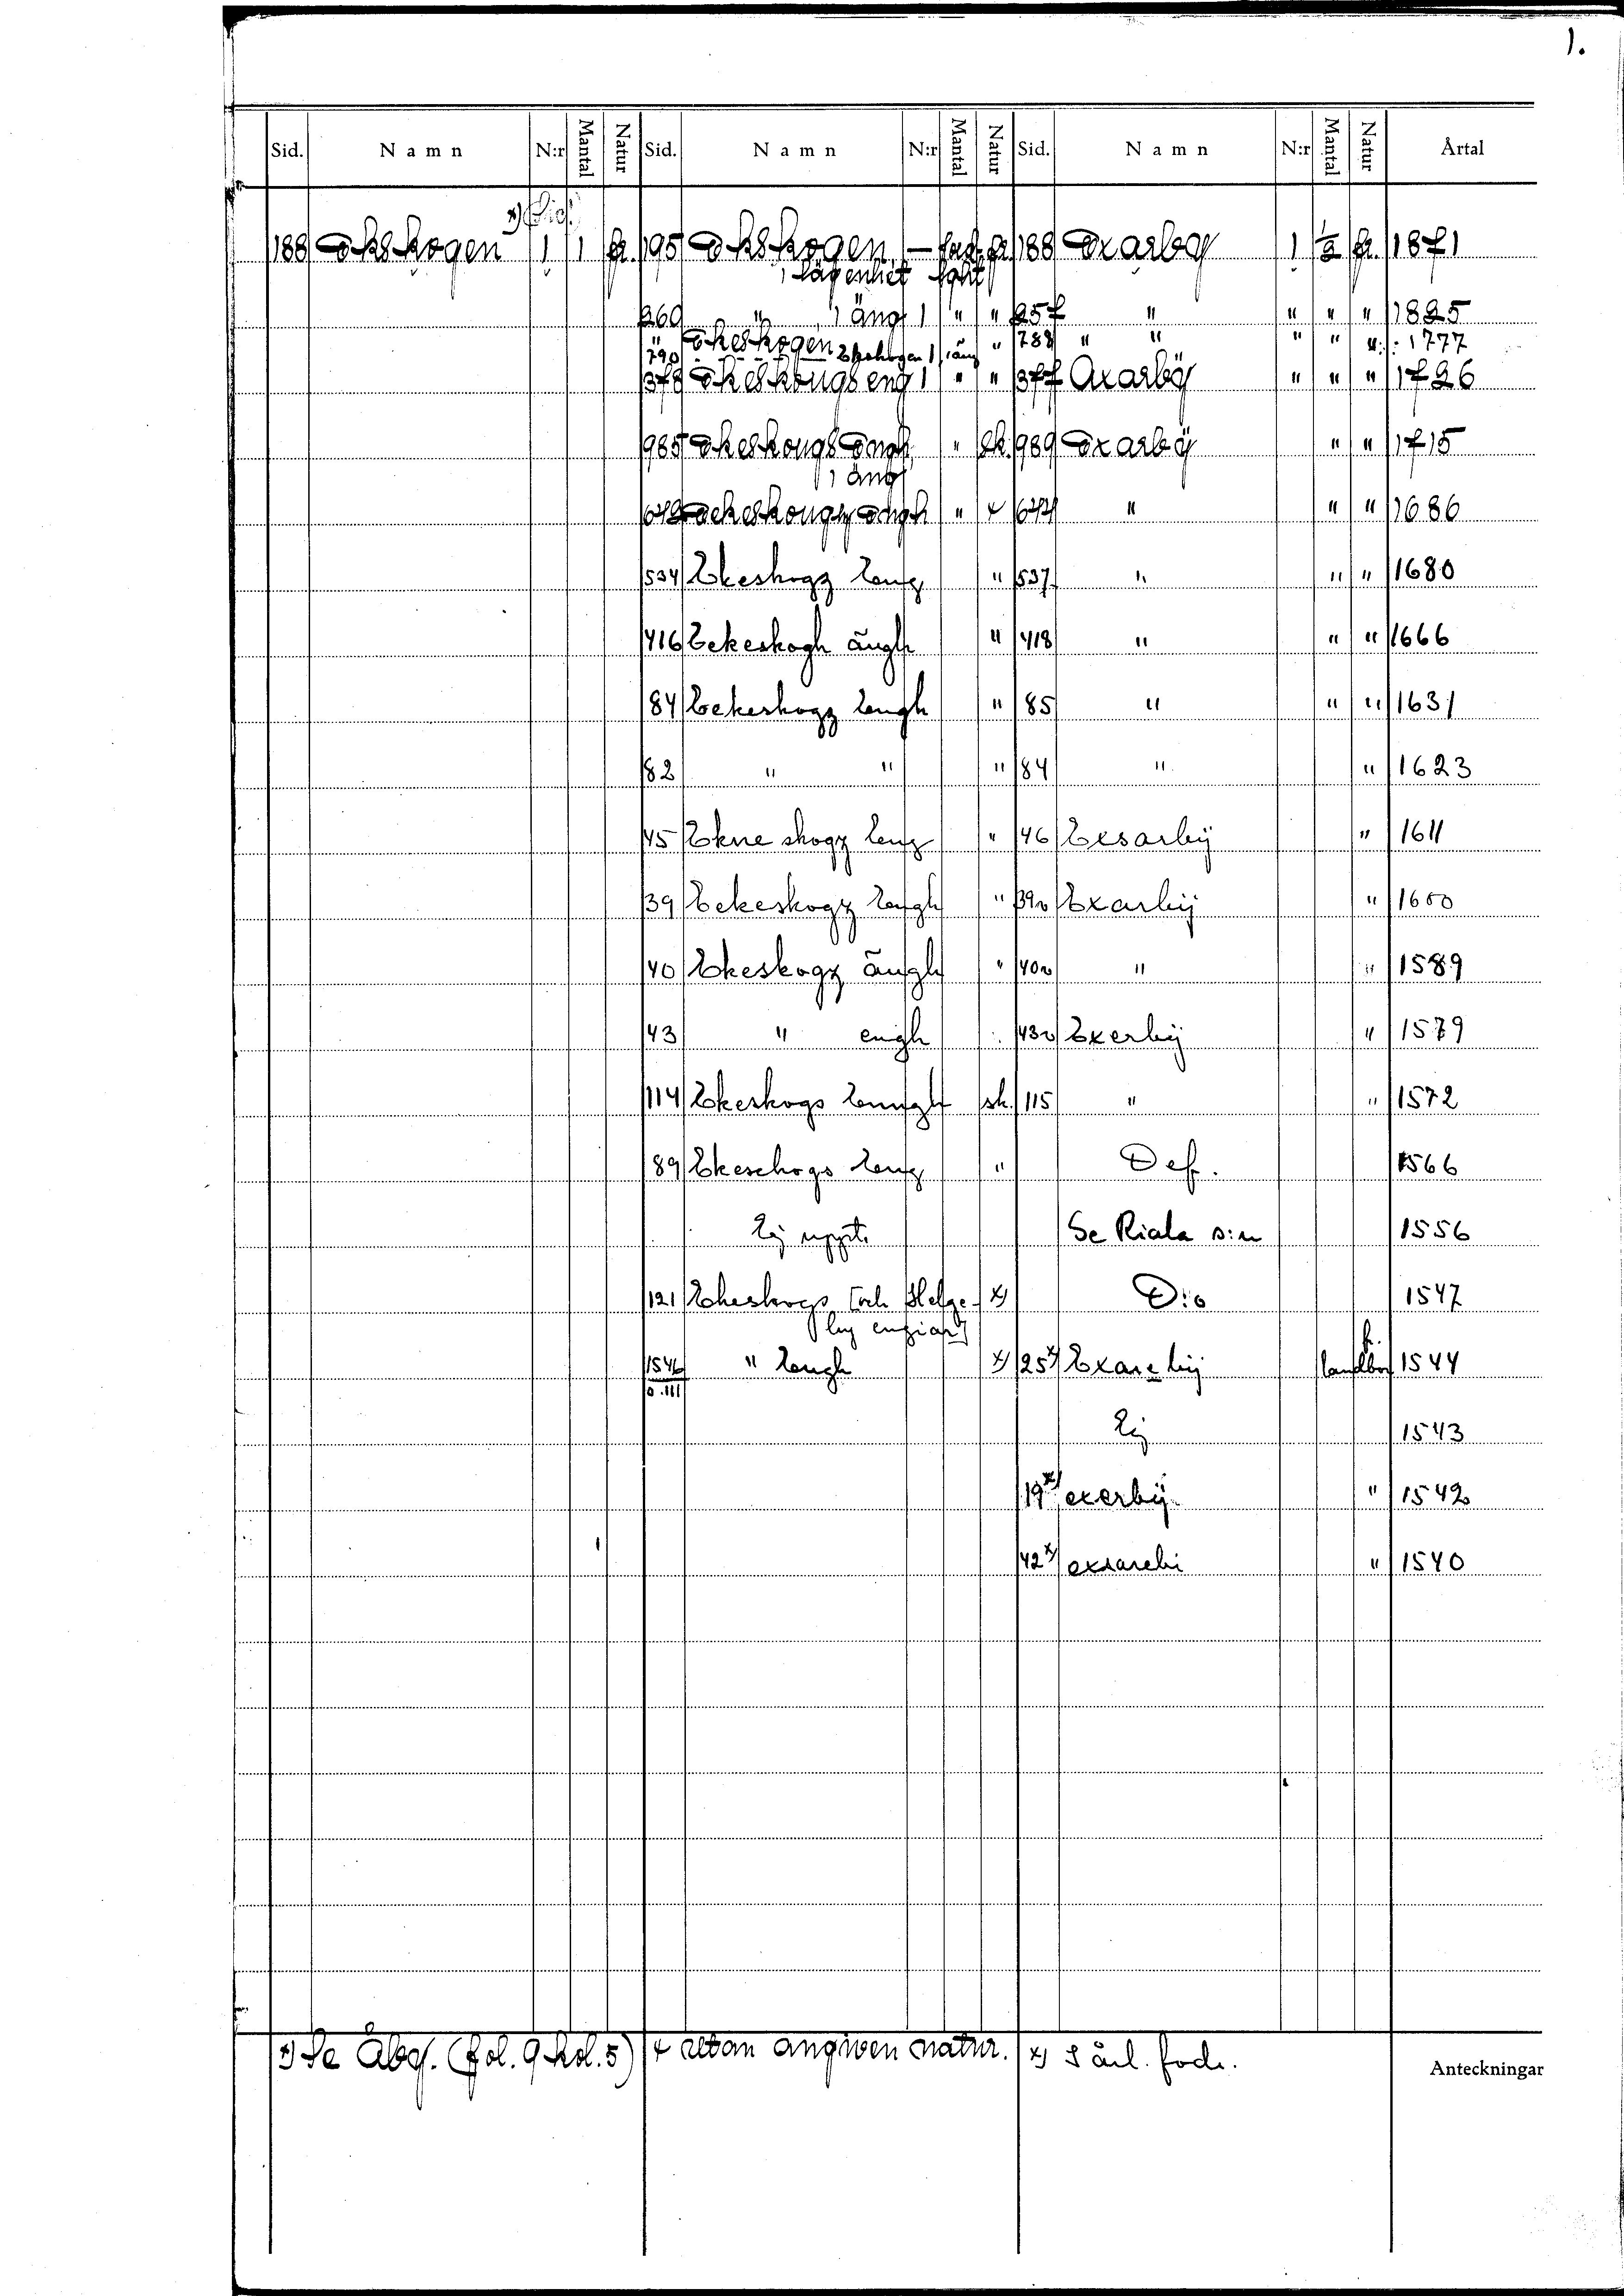 1.
Sid. Namn N:r Mantal Natur Sid. Namn N:r Mantal Natur Sid. Namn N:r Mantal Natur Årtal
x) (Sic!)
188 Ekskogen 1 1 fr. 195 Ekskogen, — fr. 188 Exarby 1 1/2 fr. 1871
1 lägenhet
260 " 1 äng 1 " " 257 " " " " 1825
" 790 Ekeskogen Ekskogen 1, 1 äng " 788 " " " " " 1777
378 Ekeskougs eng 1 " " 377 Axarbÿ " " " 1726
985 Ekeskougs Engh, " sk. 989 Exarbÿ " " 1715
1 äng
642 Eekeskougz Engh " + 644 " " " 1686
534 Ekeskogz Eng " 537 " " " 1680
416 Eekeskogh ängh " 418 " " " 1666
84 Eekeskogz Engh " 85 " " " 1631
82 " " " 84 " " 1623
45 Ekne skogz Eng " 46 Exsarbÿ " 1611
39 Eekeskogz Engh " 39v Exarbÿ " 1600
40 Ekeskogz ängh " 40v " " 1589
43 " engh 43v Exerbÿ " 1579
114 Ekeskogs Enngh sk. 115 " " 1572
89 Ekeschogs Eng " Def. 1566
Ej uppt. Se Riala s:n 1556
121 Ekeskogs [och Helge- x) D:o 1547
by engiar]
1546 0.111 " Engh x) 25 x) Exarebÿ landbor fr. 1544
Ej 1543
19 x) exerbÿ " 1542
42 x) exsarebi " 1540
x) Se Åbg. (fol. 9 kol. 5) + utan angiven natur. x) I ärl. fodr. Anteckningar